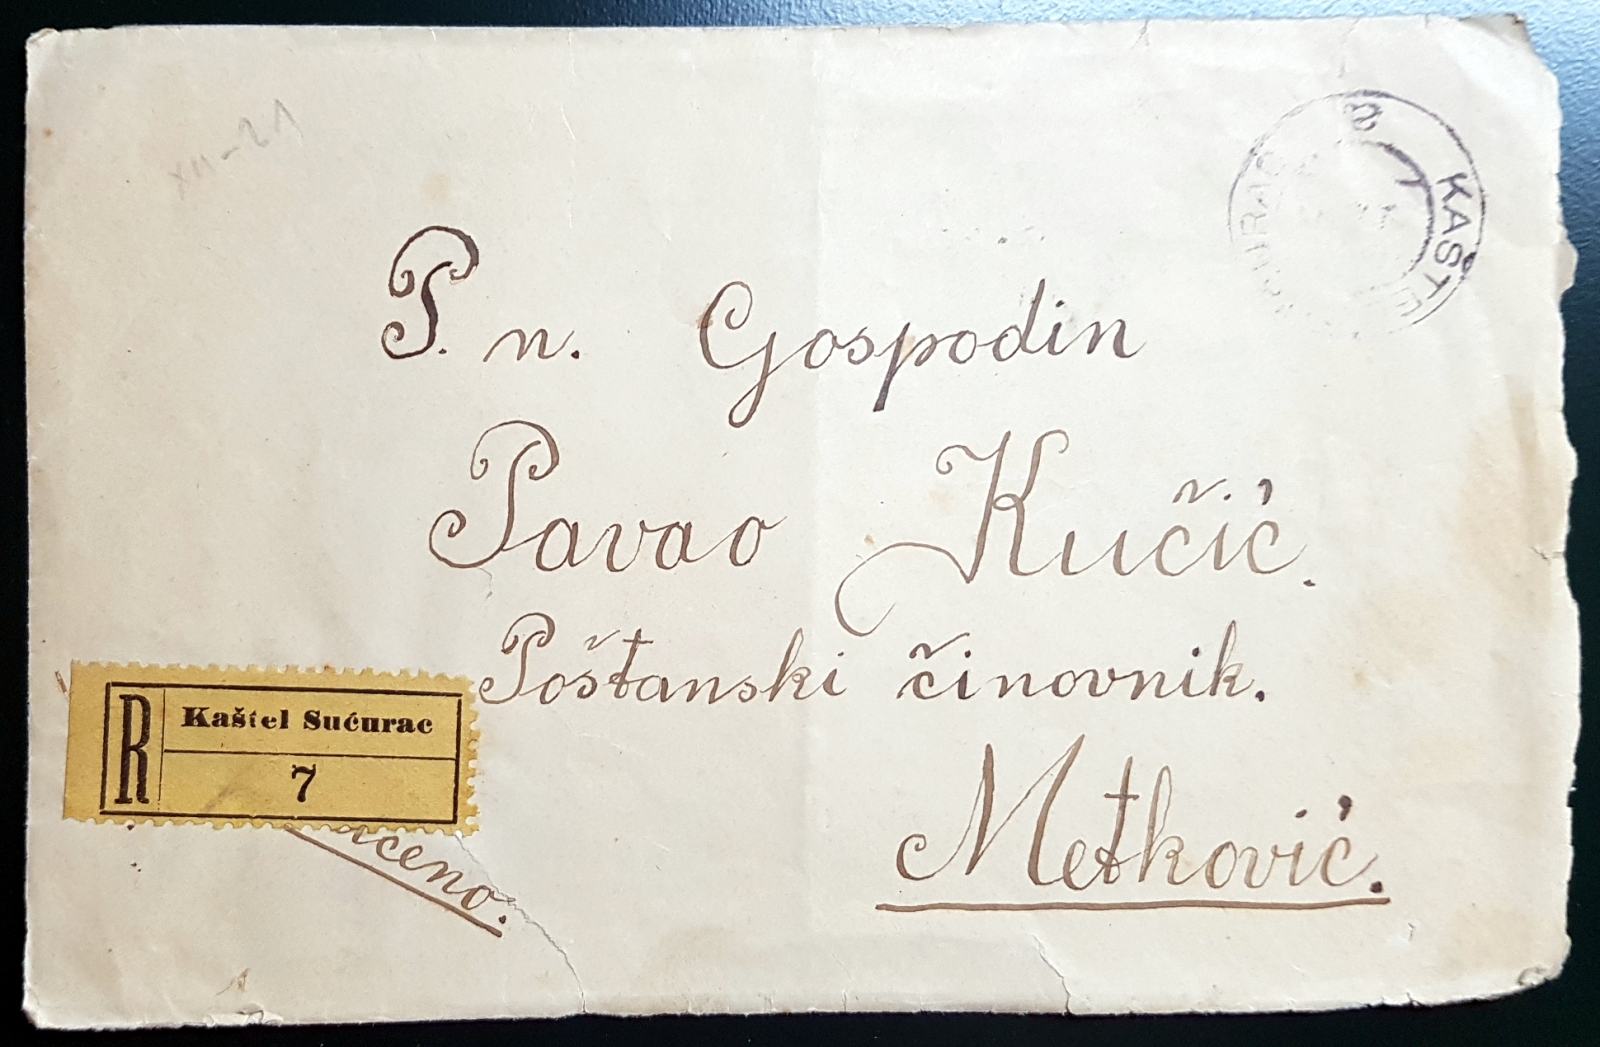 XII-21
KAŠTEL
P. n. Gospodin
Pavao Kučić.
Poštanski činovnik.
Metković.
R
Kaštel Sućurac
7